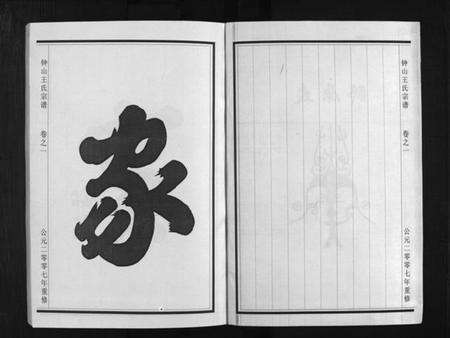 钟山王氏宗谱 卷之一 公元二零零七年重修
家
钟山王氏宗谱 卷之一 公元二零零七年重修